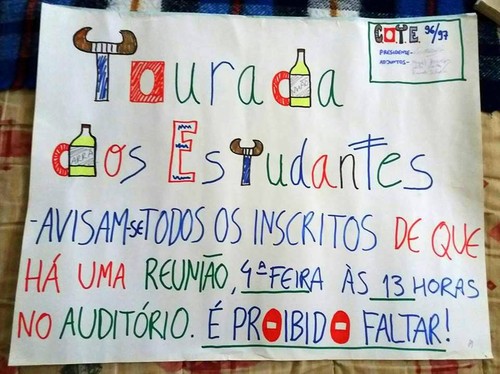 Tourada
C.O.T.E. 96/97
PRESIDENTE-
ADJUNTOS-
dos Estudantes
-AVISAM-se TODOS OS INSCRITOS DE QUE
HÁ UMA REUNIÃO, 4ª FEIRA ÀS 13 HORAS
NO AUDITÓRIO. É PROIBIDO FALTAR!